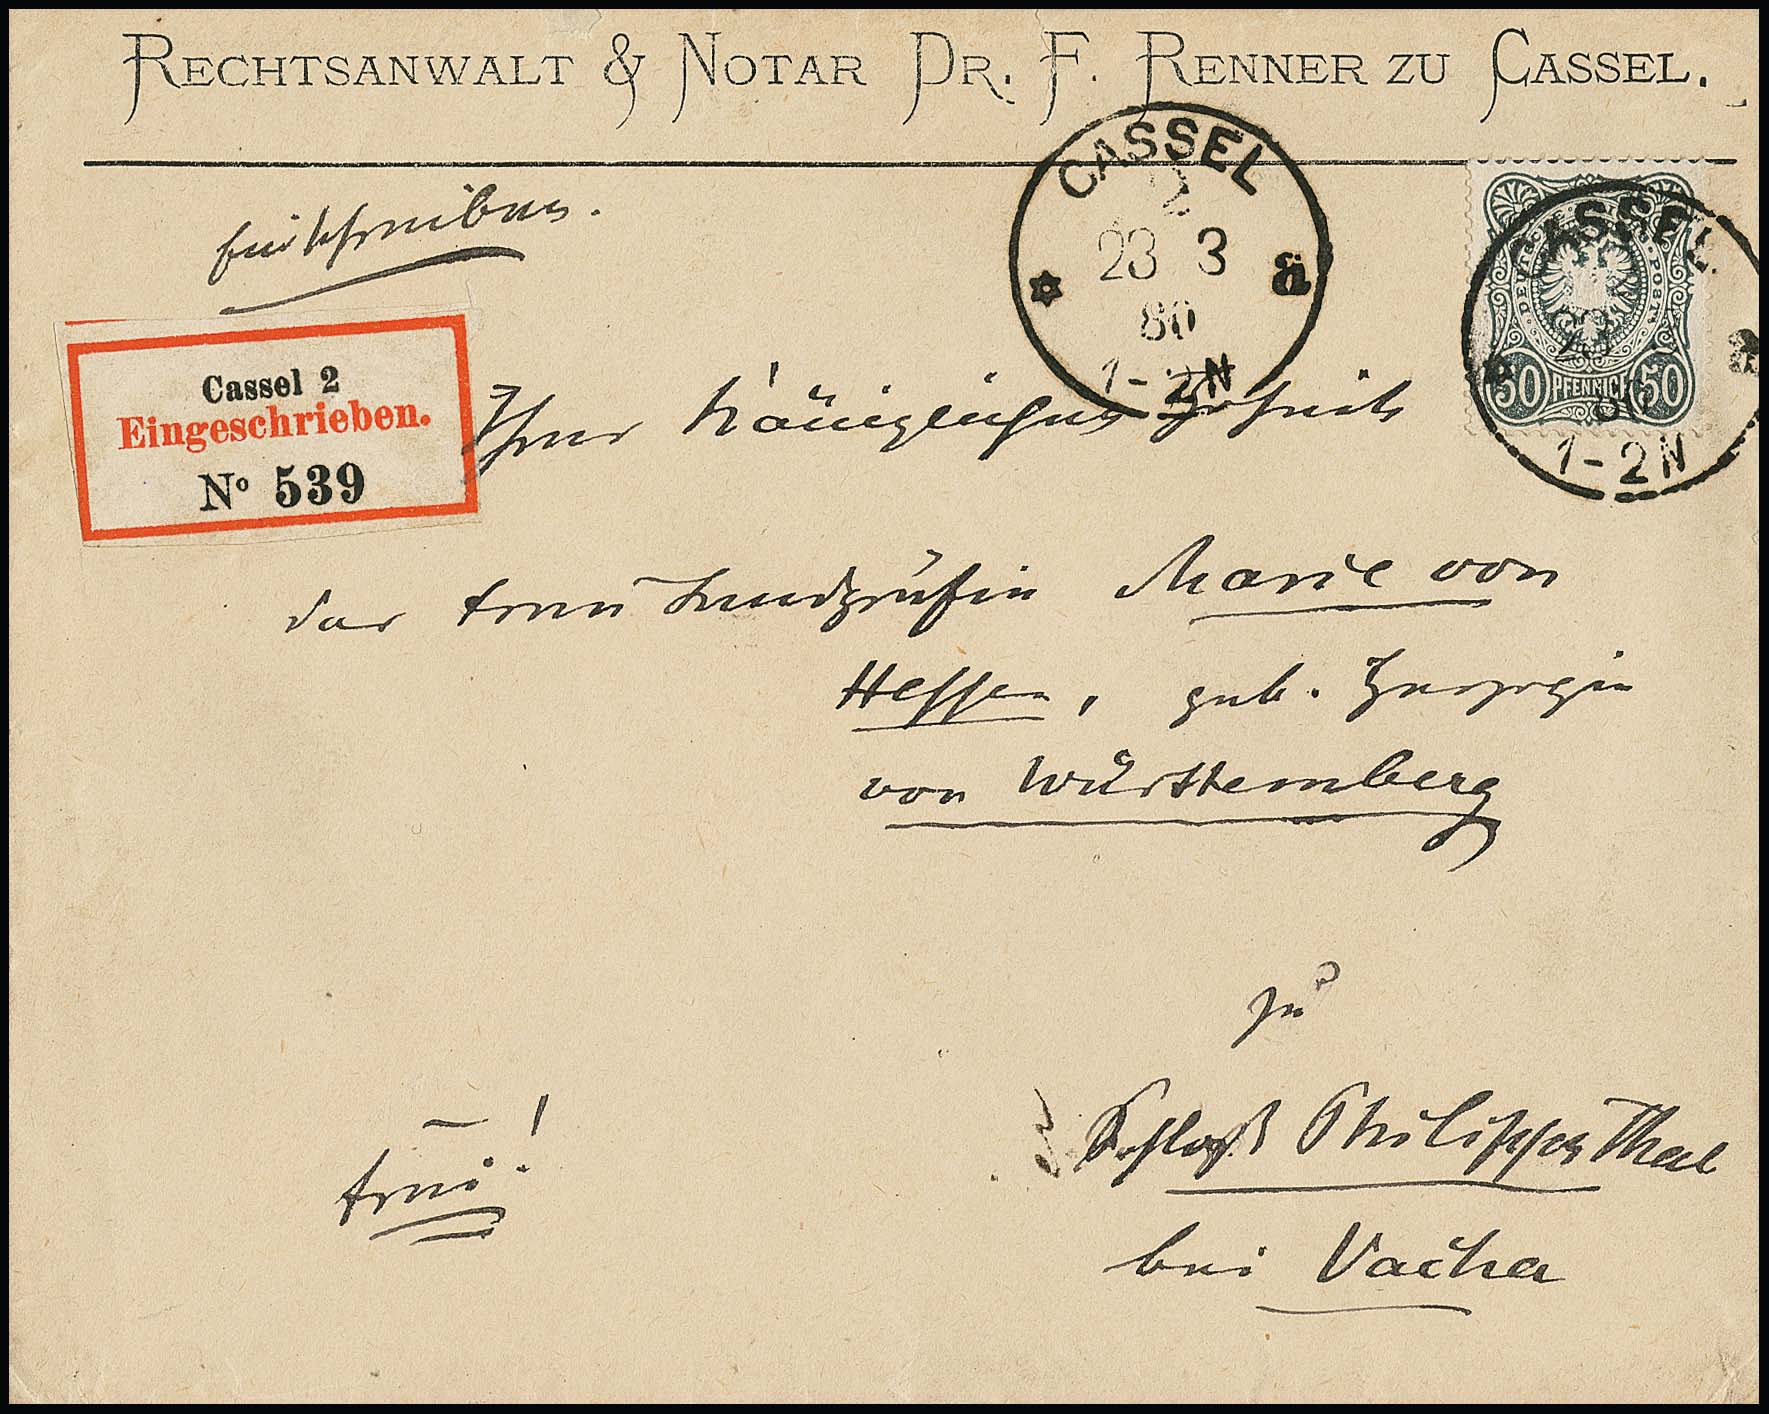 RECHTSANWALT & NOTAR DR. F. RENNER ZU CASSEL.
Einschreiben.
CASSEL
2
23 3
80
1-2N
a
DEUTSCHE REICHS-POST
50 PFENNIG 50
CASSEL
80
1-2N
a
Cassel 2
Eingeschrieben.
No 539
Ihrer Königlichen Hoheit
der Frau Landgräfin Marie von
Hessen, geb. Herzogin
von Württemberg
zu
Schloß Philippsthal
bei Vacha
frei!